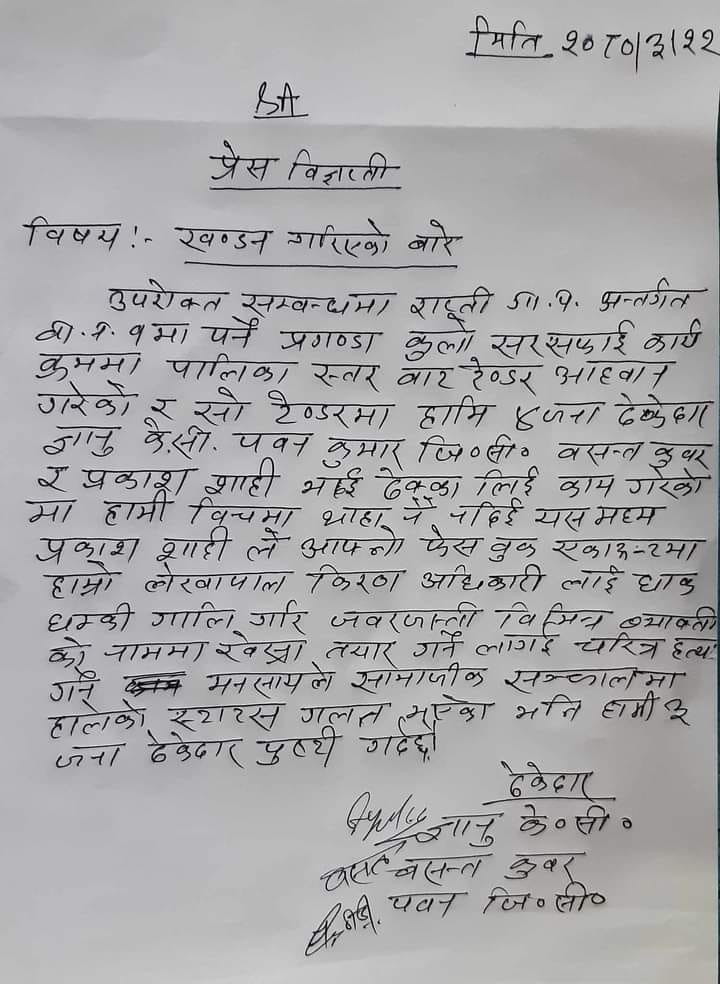 मिति २०८०/३/२२
प्रेस विज्ञप्ती
विषय :- खण्डन गरिएको बारे
उपरोक्त सम्वन्धमा गा.पा. अन्तर्गत
वा.न. १मा पर्ने प्रगण्डा कुलो सरसफाई कार्य
क्रममा पालिका स्तर वाट टेण्डर आहवान
गरेको र सो टेण्डरमा हामि ४जना ठेकेदार
ज्ञानु के.सी. पवन कुमार जि०सी० वसन्त कुवर
र प्रकाश शाही भई ठेक्का लिई काम गरेको
मा हामी विचमा थाहा नै नदिई यस मध्य
प्रकाश शाही ले आफ्नो फेस वुक एकाउन्टमा
हाम्रो लेखापाल किरण अधिकारी लाई धाक
धम्की गालि गरि जवरजस्ती विभिन्न व्याक्ती
को नाममा खेस्रा तयार गर्न लागई चरित्र हत्या
गर्ने मनसायले सामाजीक सञ्जालमा
हालेको स्टाटस गलत भएको भनि हामी ३
जना ठेकेदार पुष्टी गर्दछौ
ठेकेदार
ज्ञानु के०सी०
बसन्त कुवर
पवन जि०सी०